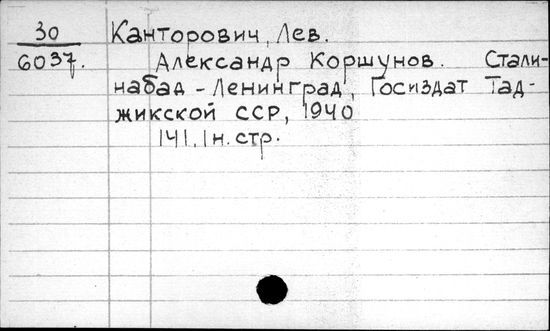 30
6037.
Канторович, Лев.
Александр Коршунов. Стали-
набад - Ленинград, Госиздат Тад-
жикской ССР, 1940
141, 1 н. стр.